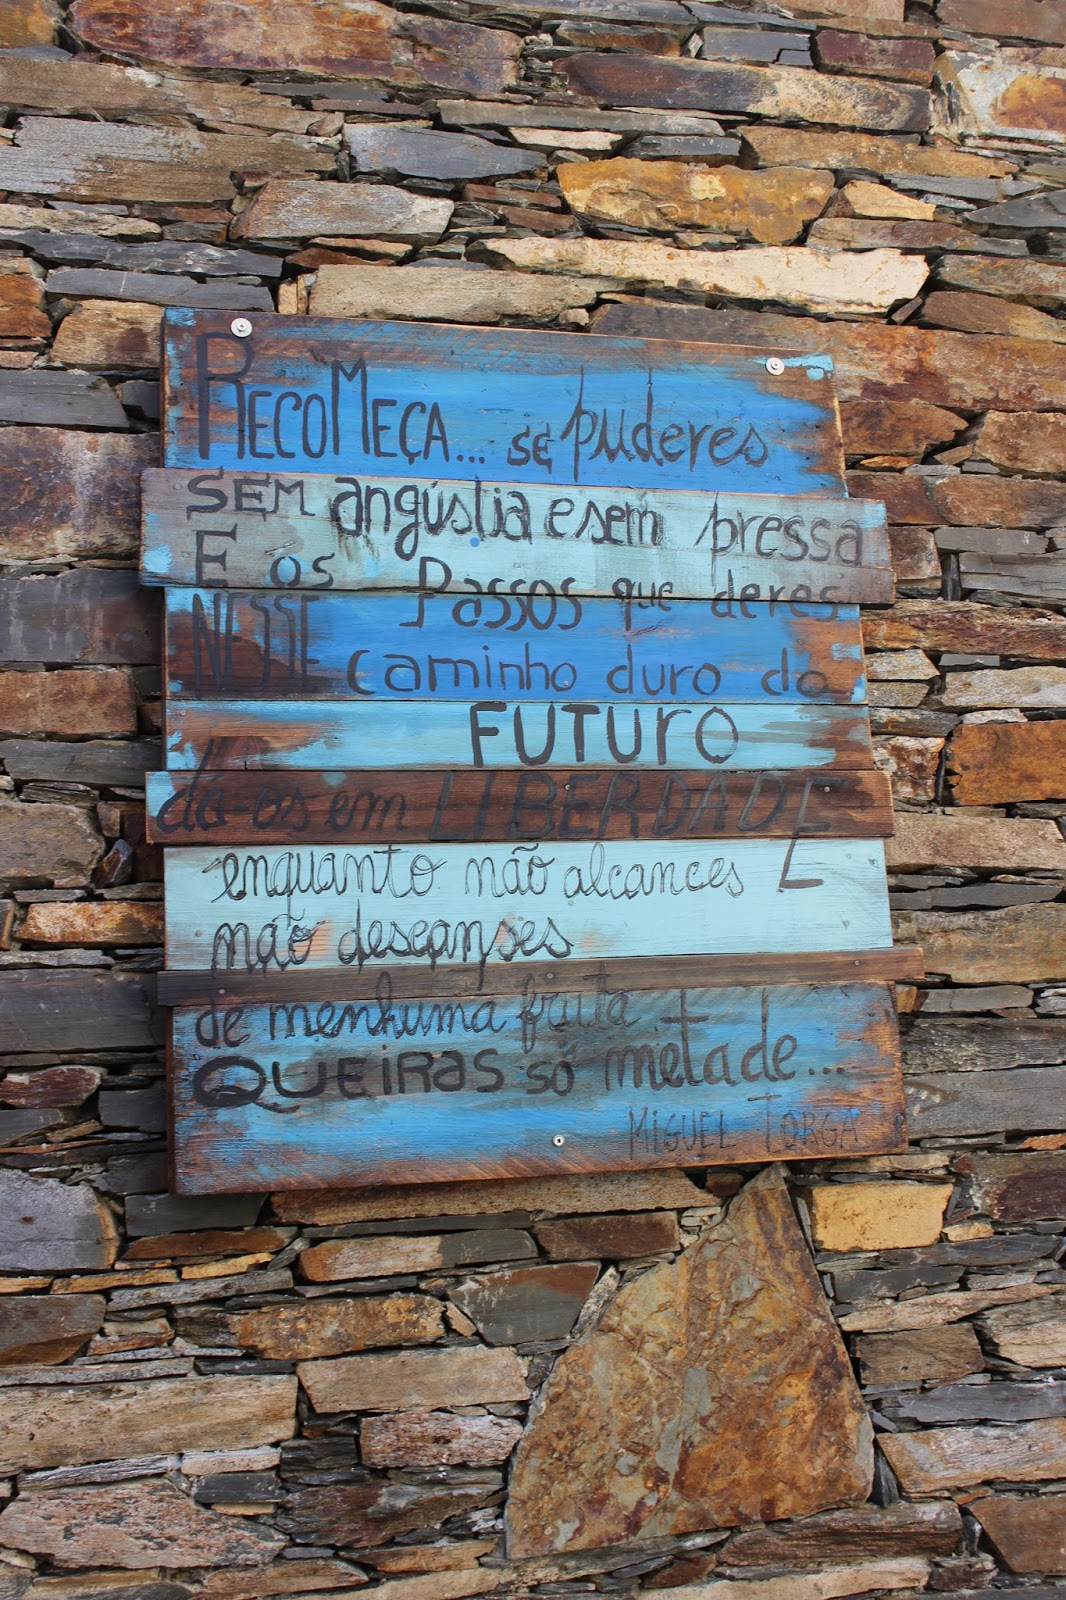 RECOMEÇA... se puderes
SEM angústia e sem pressa
E os Passos que deres
NESSE caminho duro do
FUTURO
dá-os em LIBERDADE
enquanto não alcances E
não descanses
de nenhuma fruta
QUEIRAS só metade...
MIGUEL TORGA